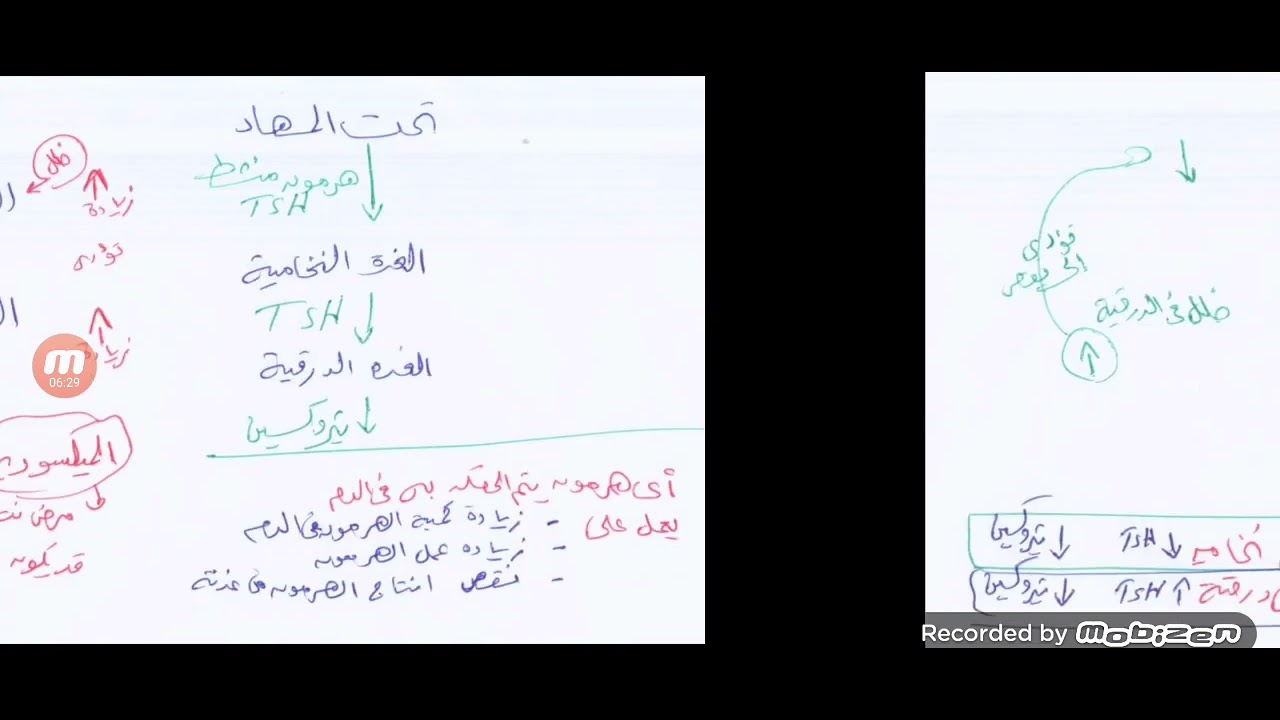 تحت المهاد
هرمون منشط
TSH
الغدة النخامية
TSH
الغدة الدرقية
تيروكسين
أى هرمون يتم الحقن به فى الدم
يعمل على - زيادة كمية الهرمون فى الدم
- زيادة عمل الهرمون
- نقص انتاج الهرمون من غدته
خلل
زيادة
تؤدى
زيادة
06:29
قد يكون
تؤدى
الى نقص
خلل فى الدرقية
نخاميه TSH تيروكسين
TSH تيروكسين
Recorded by mobizen